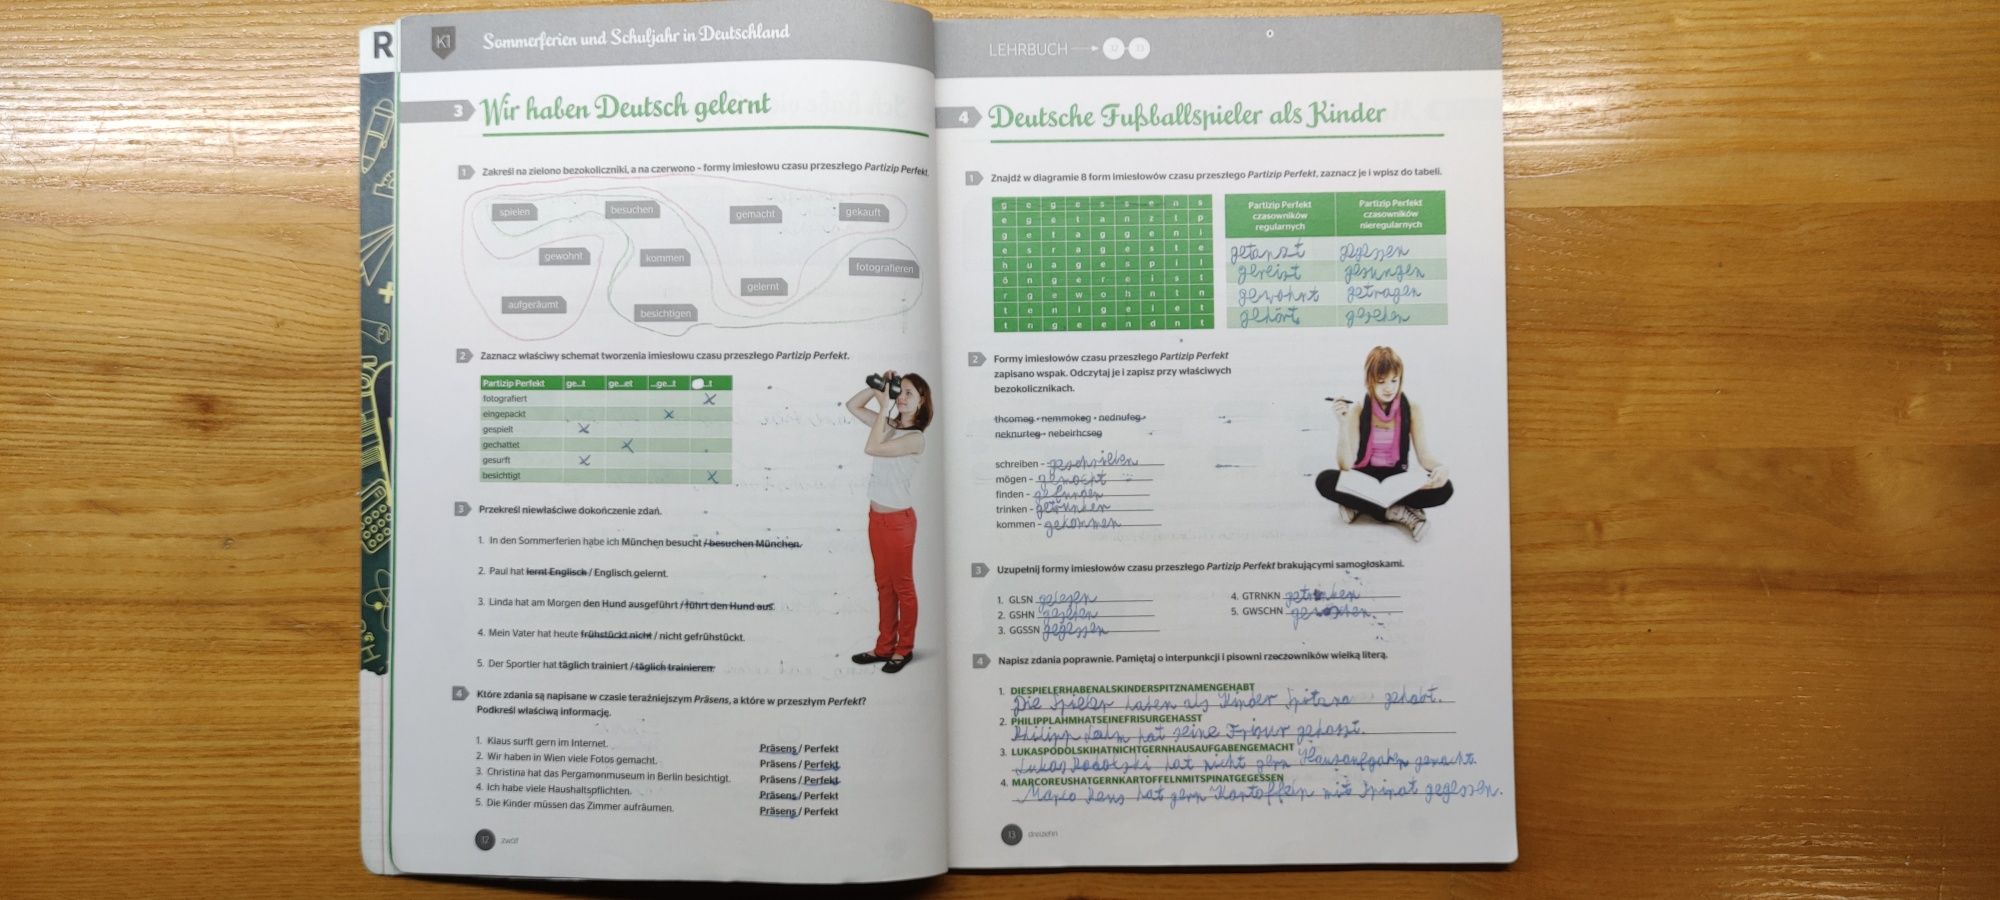 R
K1
Sommerferien und Schuljahr in Deutschland
3 Wir haben Deutsch gelernt
1 Zakreśl na zielono bezokoliczniki, a na czerwono – formy imiesłowu czasu przeszłego Partizip Perfekt.
spielen besuchen gemacht gekauft
gewohnt kommen fotografieren
aufgeräumt gelernt
besichtigen
2 Zaznacz właściwy schemat tworzenia imiesłowu czasu przeszłego Partizip Perfekt.
Partizip Perfekt ge...t ge...et ...ge...t ...t
fotografiert x
eingepackt x
gespielt x
gechattet x
gesurft x
besichtigt x
3 Przekreśl niewłaściwe dokończenie zdań.
1. In den Sommerferien habe ich München besucht / besuchen München.
2. Paul hat lernt Englisch / Englisch gelernt.
3. Linda hat am Morgen den Hund ausgeführt / führt den Hund aus.
4. Mein Vater hat heute frühstückt nicht / nicht gefrühstückt.
5. Der Sportler hat täglich trainiert / täglich trainieren.
4 Które zdania są napisane w czasie teraźniejszym Präsens, a które w przeszłym Perfekt?
Podkreśl właściwą informację.
1. Klaus surft gern im Internet. Präsens / Perfekt
2. Wir haben in Wien viele Fotos gemacht. Präsens / Perfekt
3. Christina hat das Pergamonmuseum in Berlin besichtigt. Präsens / Perfekt
4. Ich habe viele Haushaltspflichten. Präsens / Perfekt
5. Die Kinder müssen das Zimmer aufräumen. Präsens / Perfekt
12 zwölf
LEHRBUCH 32 33
4 Deutsche Fußballspieler als Kinder
1 Znajdź w diagramie 8 form imiesłowów czasu przeszłego Partizip Perfekt, zaznacz je i wpisz do tabeli.
g e g e s s e n s
e g e t a n z t p
g e t a g g e n i
e s r a g e s t e
h u a g e s p i l
ö n g e r e i s t
r g e w o h n t n
t e n i g e l e t
t n g e e n d n t
Partizip Perfekt czasowników regularnych
Partizip Perfekt czasowników nieregularnych
getanzt gegessen
gereist gesungen
gewohnt getragen
gehört gesehen
2 Formy imiesłowów czasu przeszłego Partizip Perfekt
zapisano wspak. Odczytaj je i zapisz przy właściwych
bezokolicznikach.
thcomeg • nemmokeg • nednufeg •
neknurteg • nebeirhcseg
schreiben – geschrieben
mögen – gemocht
finden – gefunden
trinken – getrunken
kommen – gekommen
3 Uzupełnij formy imiesłowów czasu przeszłego Partizip Perfekt brakującymi samogłoskami.
1. GLSN gelesen
2. GSHN gesehen
3. GGSSN gegessen
4. GTRNKN getrunken
5. GWSCHN
4 Napisz zdania poprawnie. Pamiętaj o interpunkcji i pisowni rzeczowników wielką literą.
1. DIESPIELERHABENALSKINDERSPITZNAMENGEHABT
Die Spieler haben als Kinder gehabt.
2. PHILIPPLAHMHATSEINEFRISURGEHASST
Philipp Lahm hat seine Frisur gehasst.
3. LUKASPODOLSKIHATNICHTGERNHAUSAUFGABENGEMACHT
Lukas Podolski hat nicht gern Hausaufgaben gemacht.
4. MARCOREUSHATGERNKARTOFFELNMITSPINATGEGESSEN
Marco Reus hat gern Kartoffeln mit Spinat gegessen.
13 dreizehn